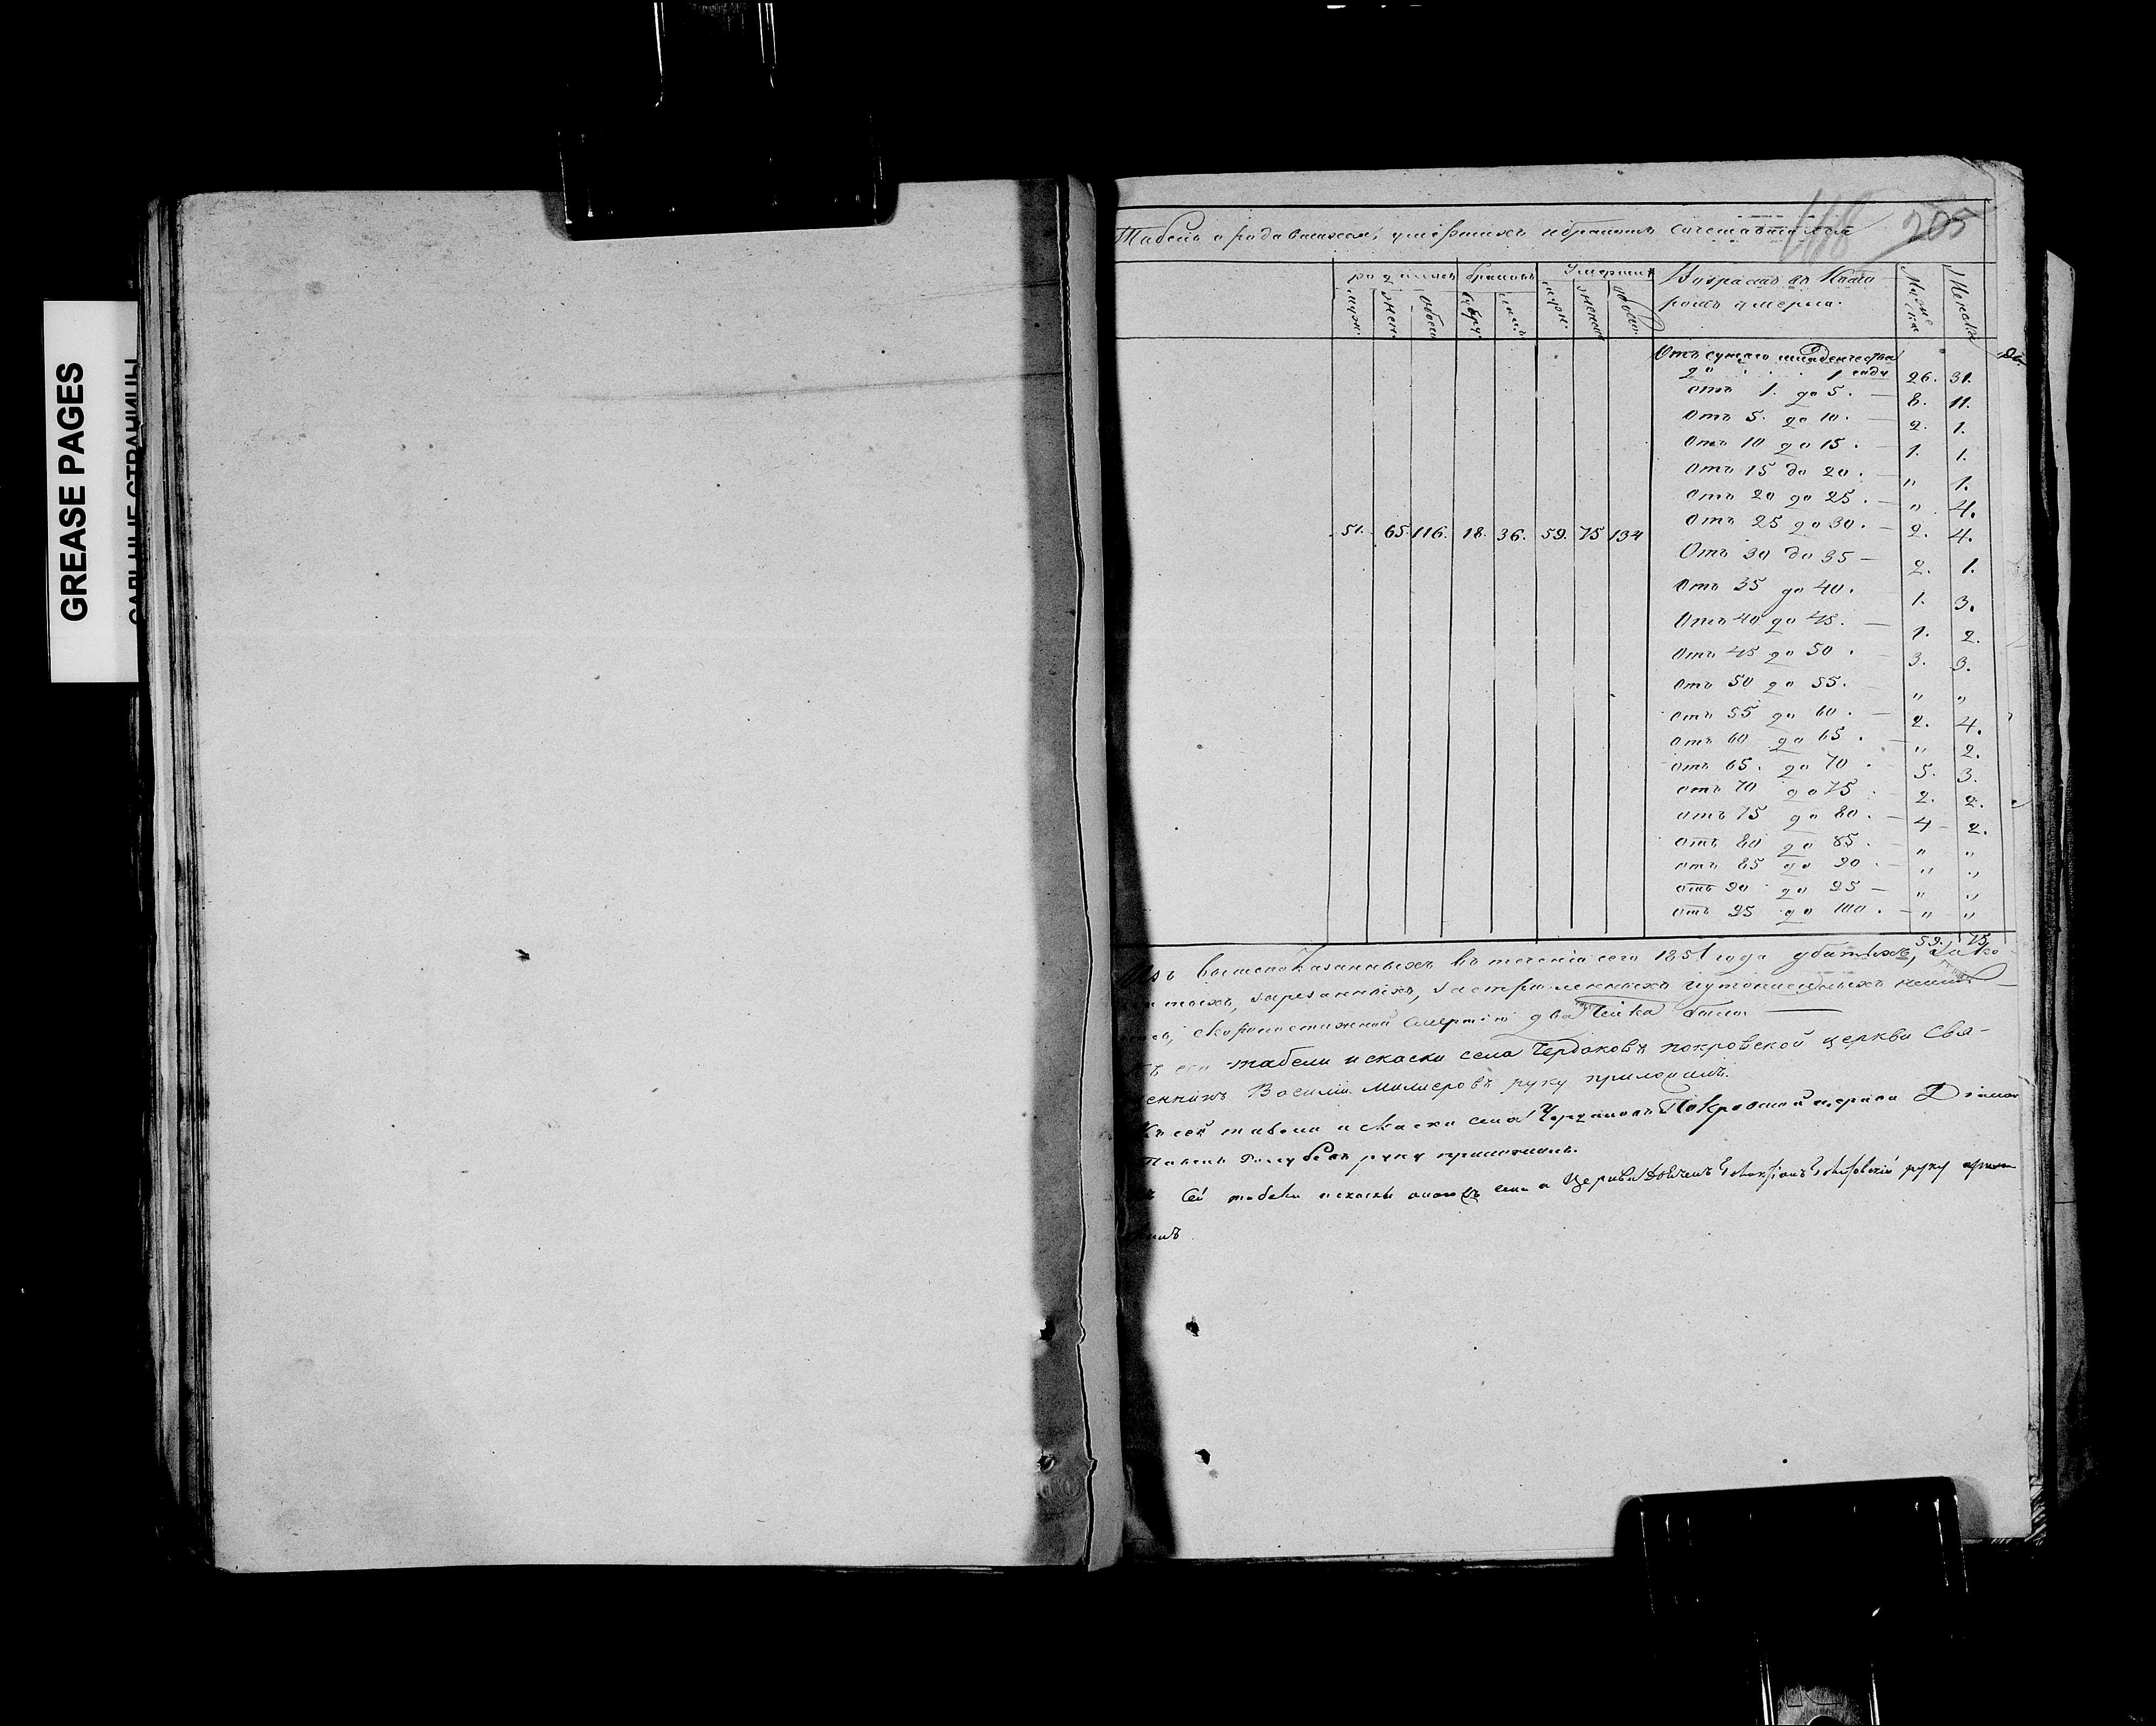 GREASE PAGES
САЛЬНЫЕ СТРАНИЦЫ
168 205
Табель о родавшихся, умершихъ и бракомъ сочетавшихся
родились браковъ Умерши Возрастъ въ Кото Мужеска Женска
муж. жен. обоего бра лицъ муж. женс обоего ромъ умерли.
Отъ сущаго младенчества
до 1 году 26. 31.
отъ 1. до 5. — 8. 11.
Отъ 5. до 10. — 2. 1.
Отъ 10 до 15. — 1. 1.
Отъ 15 до 20. — " 1.
Отъ 20 до 25. — " 4.
51. 65. 116. 18. 36. 59. 75 134 Отъ 25 до 30. — 2. 4.
Отъ 30 до 35 — 2. 1.
Отъ 35 до 40. 1. 3.
Отъ 40 до 45. — 1. 2.
Отъ 45 до 50. — 3. 3.
Отъ 50 до 55. " "
отъ 55 до 60. — 2. 4.
отъ 60 до 65. — " 2.
отъ 65. до 70 5. 3.
отъ 70 до 75 2. 2.
отъ 75 до 80. — 4 2.
отъ 80 до 85. — " "
отъ 85 до 90. — " "
отъ 90 до 95 — " "
отъ 95 до 100. — " "
59. 75
Изъ вышепоказанныхъ въ теченіи сего 1851 года убитыхъ,
зарезанныхъ, застреленныхъ
скоропостижной смертію два было —
табели и скаски села Чердаковъ покровской церкви Свя-
Василій руку приложилъ.
Къ сей табели и скаски села Чердаковъ Покровской церкви
Павелъ Голубевъ руку приложилъ.
сей табели и скаски онаго села Церкви руку